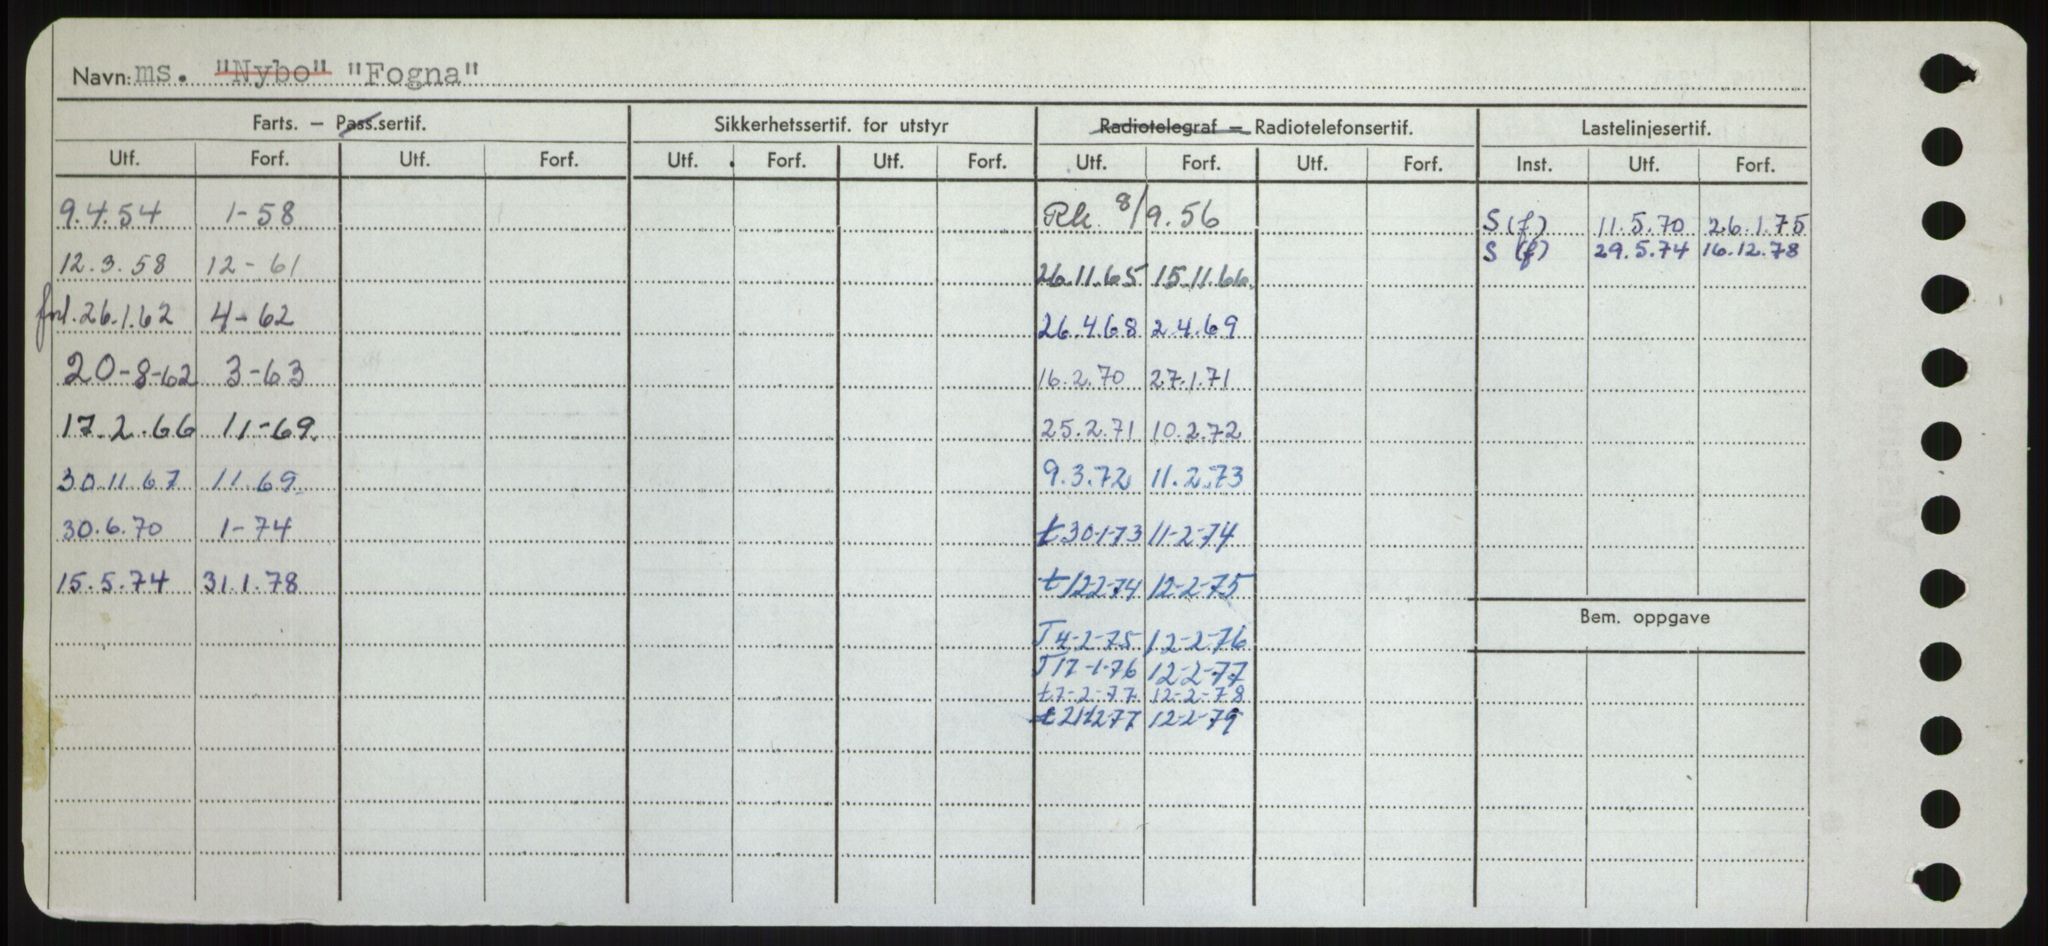 Navn: ms. "Nybo" "Fogna"
Farts. — Pass.sertif. Sikkerhetssertif. for utstyr Radiotelegraf — Radiotelefonsertif. Lastelinjesertif.
Utf. Forf. Utf. Forf. Utf. Forf. Utf. Forf. Utf. Forf. Utf. Forf. Inst. Utf. Forf.
9.4.54 1-58 Rk. 8/9.56 S(f) 11.5.70 26.1.75
S (f) 29.5.74 16.12.78
12.3.58 12-61 26.11.65 15.11.66.
forl. 26.1.62 4-62 26.4.68 2.4.69
20-8-62 3-63 16.2.70 27.1.71
17.2.66 11-69. 25.2.71 10.2.72
30.11.67 11.69 9.3.72 11.2.73
30.6.70 1-74 t 30-1-73 11-2-74
15.5.74 31.1.78 t 12-2-74 12-2-75
Bem. oppgave
T 4-2-75 12-2-76
T 17-1-76 12-2-77
t 7-2-77 12-2-78
t 12-2-79